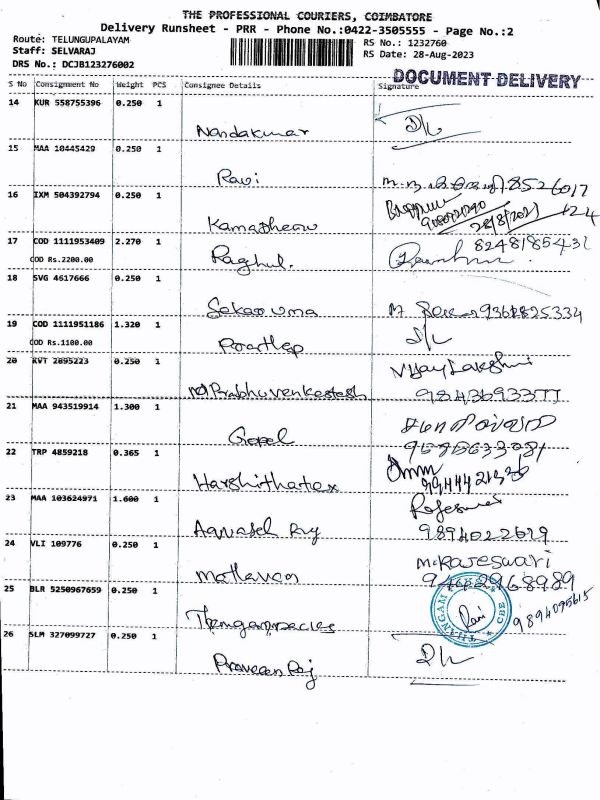 THE PROFESSIONAL COURIERS, COIMBATORE
Delivery Runsheet - PRR - Phone No.:0422-3505555 - Page No.:2
Route: TELUNGUPALAYAM
Staff: SELVARAJ
DRS No.: DCJB123276002
RS No.: 1232760
RS Date: 28-Aug-2023
DOCUMENT DELIVERY
S No Consignment No Weight PCS Consignee Details Signature
14 KUR 558755396 0.250 1 Nandakumar D/L
15 MAA 10445429 0.250 1 Ravi 8526017
124
16 IXM 504392794 0.250 1 28/8/2023
17 COD 1111953409 2.270 1 Raghul. 8248185431
COD Rs.2200.00
18 SVG 4617666 0.250 1 Sekar uma 9361825334
19 COD 1111951186 1.320 1 Prathap D/L
COD Rs.1100.00
20 KVT 2895223 0.250 1 Prabhu Venkatesh Vijay Lakshmi
9843693377
21 MAA 943519914 1.300 1 Gopal
22 TRP 4859218 0.365 1 Harshithatex
23 MAA 103624971 1.600 1 Rajeswari
9894022629
24 VLI 109776 0.250 1 M.Rajeswari
9442968989
25 BLR 5250967659 0.250 1 Ravi 9894095615
THANGAM CBE
26 SLM 327099727 0.250 1 Praveen Raj D/L